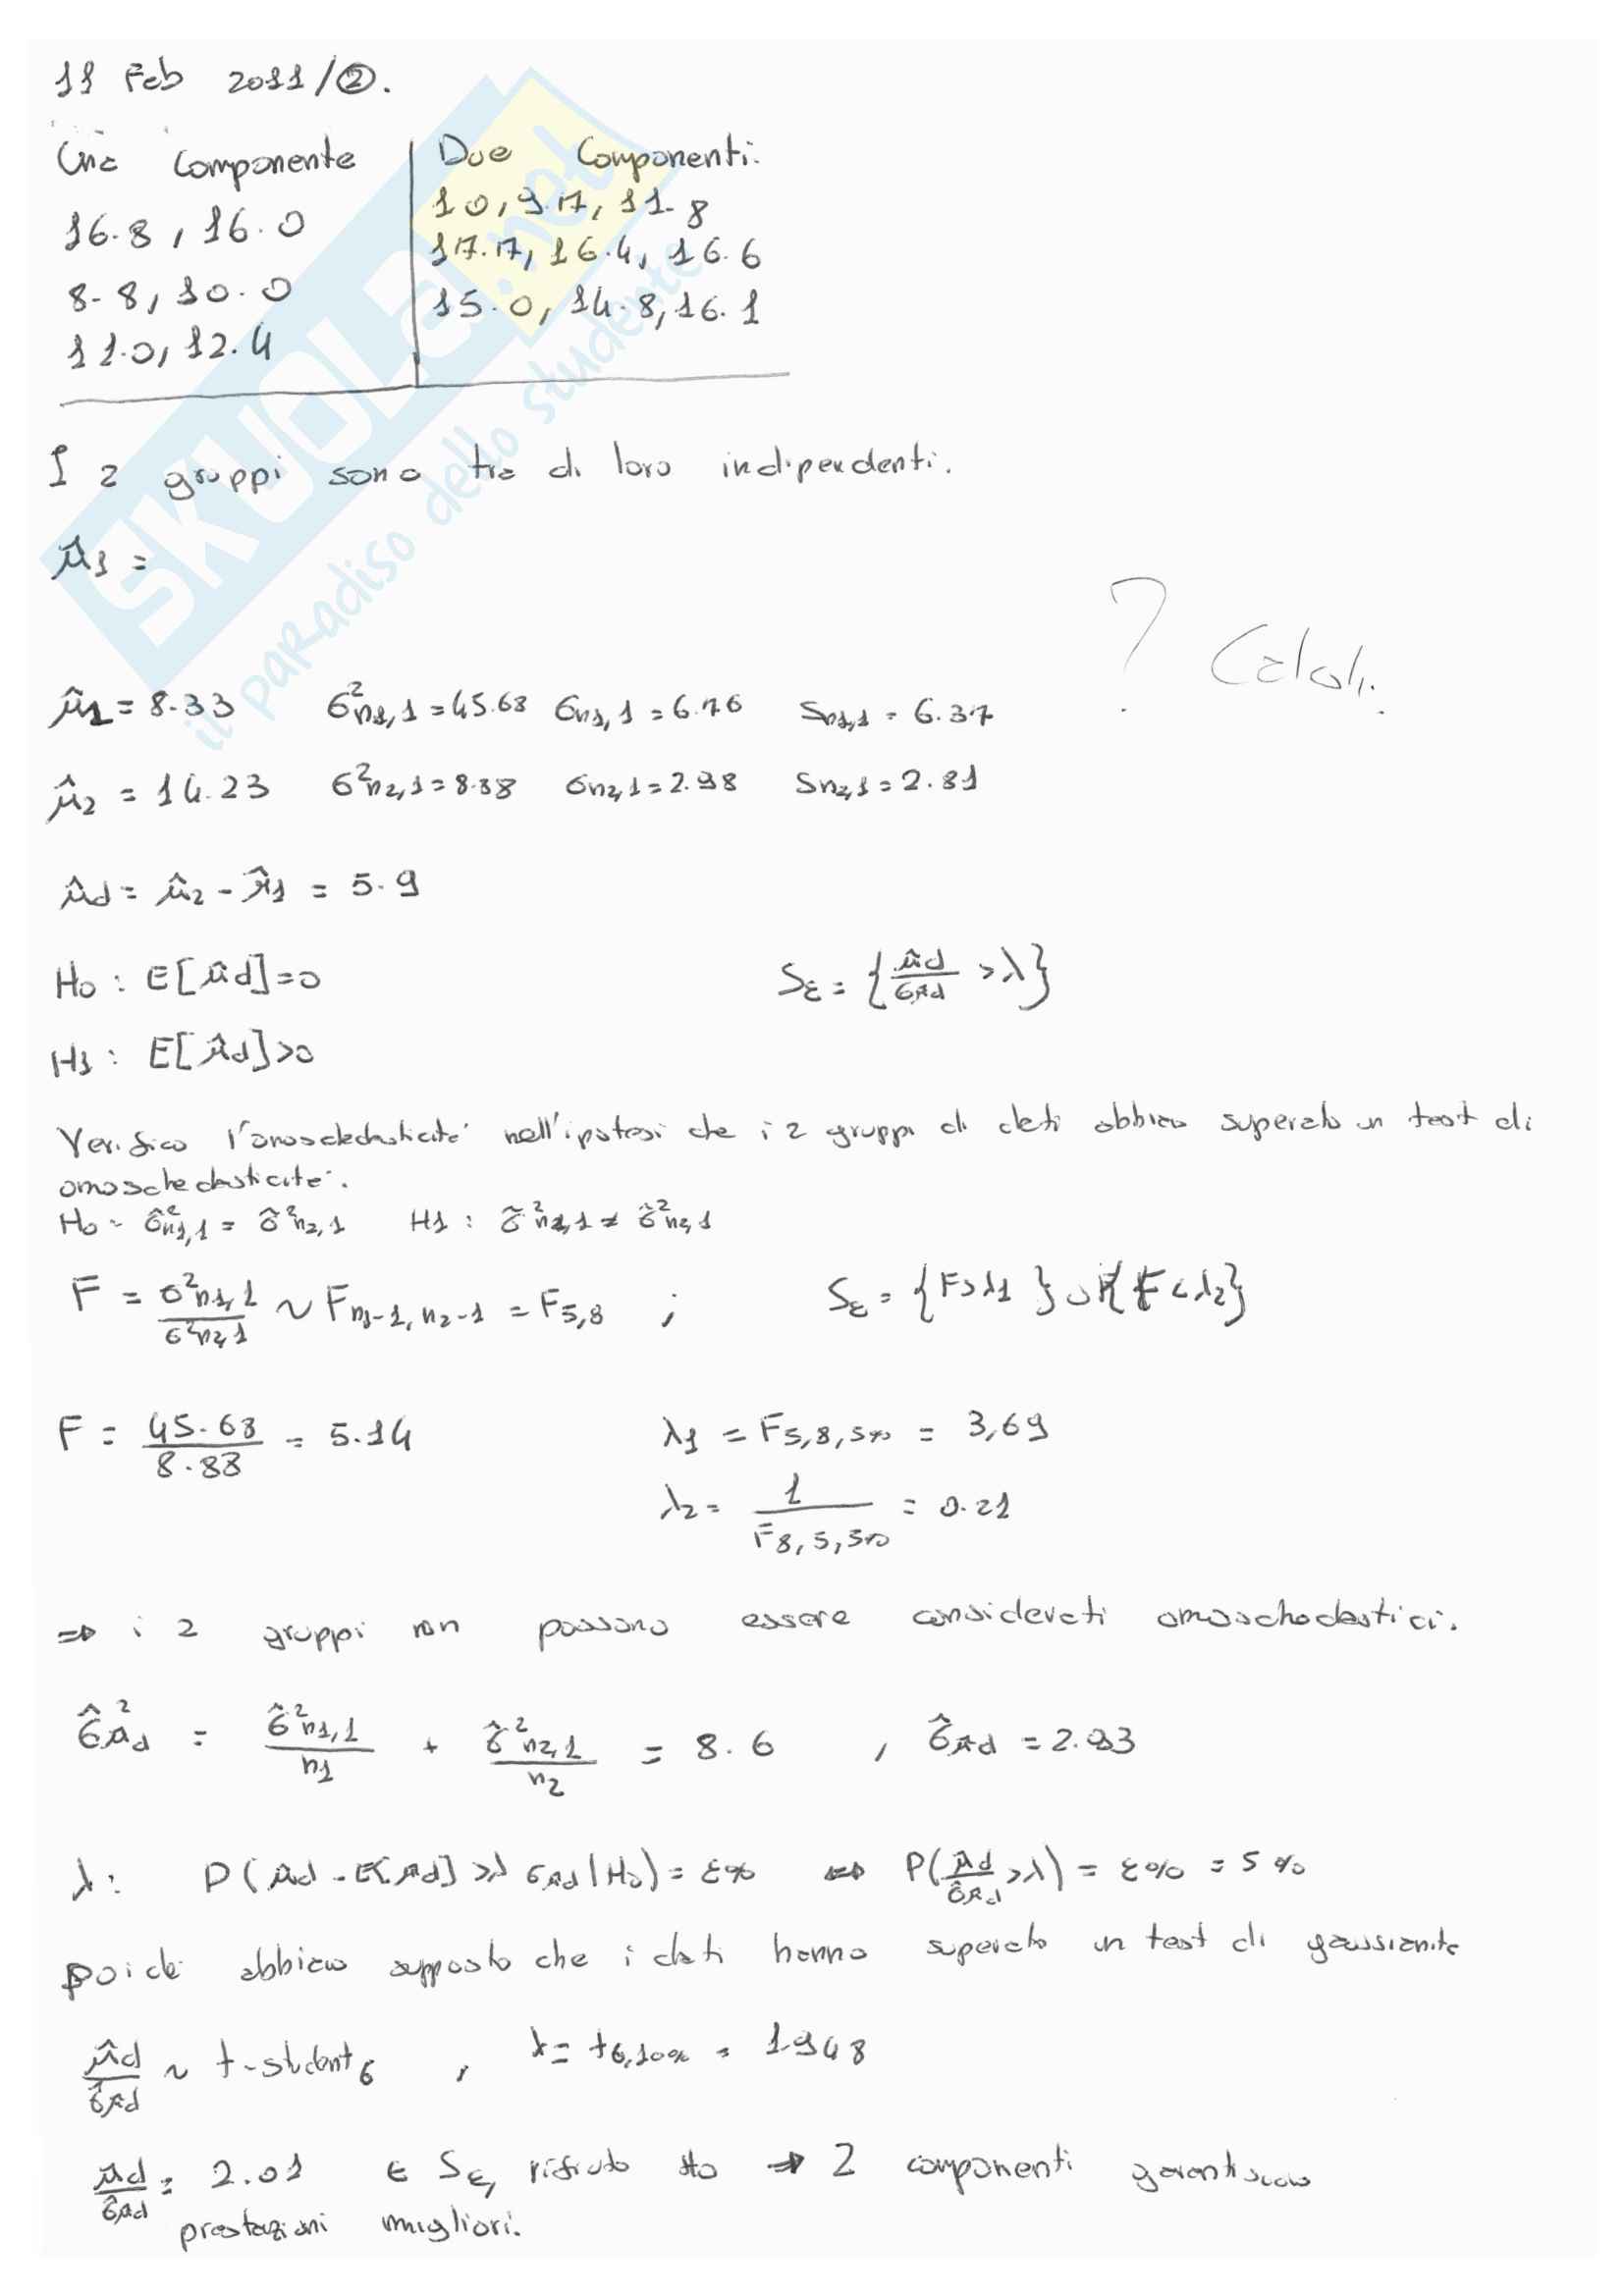 11 Feb 2011/②.
Una Componente | Due Componenti.
16.8, 16.0 | 10, 9.7, 11.8
8.8, 10.0 | 17.7, 16.4, 16.6
11.0, 12.4 | 15.0, 14.8, 16.1
I 2 gruppi sono tra di loro indipendenti.
μ̂1 =
? Calcoli.
μ̂1 = 8.33 σ²n1,1 = 45.68 σn1,1 = 6.76 Sn1,1 = 6.37
μ̂2 = 14.23 σ²n2,1 = 8.88 σn2,1 = 2.98 Sn2,1 = 2.81
μ̂d = μ̂2 - μ̂1 = 5.9
H0 : E[μ̂d]=0 Sε = {μ̂d/σμ̂d > λ}
H1 : E[μ̂d]>0
Verifico l'omoschedasticità nell'ipotesi che i 2 gruppi di dati abbiano superato un test di
omoschedasticità.
H0 : σ̂²n1,1 = σ̂²n2,1 H1 : σ̂²n1,1 ≠ σ̂²n2,1
F = σ²n1,1/σ²n2,1 ~ Fn1-1, n2-1 = F5,8 ; Sε = {F>λ1} ∪ {F<λ2}
F = 45.68/8.88 = 5.14 λ1 = F5,8,5% = 3,69
λ2 = 1/F8,5,5% = 0.21
⇒ i 2 gruppi non possono essere considerati omoschedastici.
σ̂²μ̂d = σ̂²n1,1/n1 + σ̂²n2,1/n2 = 8.6 , σ̂μ̂d = 2.93
λ : P(μ̂d - E[μ̂d] > λ σμ̂d | H0) = ε% ⇔ P(μ̂d/σ̂μ̂d > λ) = ε% = 5%
poiché abbiamo supposto che i dati hanno superato un test di gaussianità
μ̂d/σ̂μ̂d ~ t-student6 , λ = t6,10% = 1.948
μ̂d/σ̂μ̂d = 2.01 ∈ Sε, rifiuto H0 ⇒ 2 componenti garantiscono
prestazioni migliori.
SKUOLA.net
il paradiso dello studente